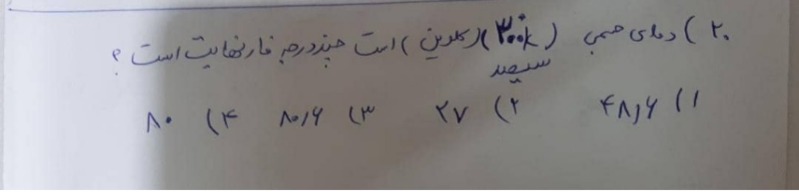 ۲۰) دمای جسمی (۳۰۰k) (کلوین) است چند درجه فارنهایت است ؟
سیصد
۱) ۴۸٫۶ ۲) ۲۷ ۳) ۸۰٫۶ ۴) ۸۰